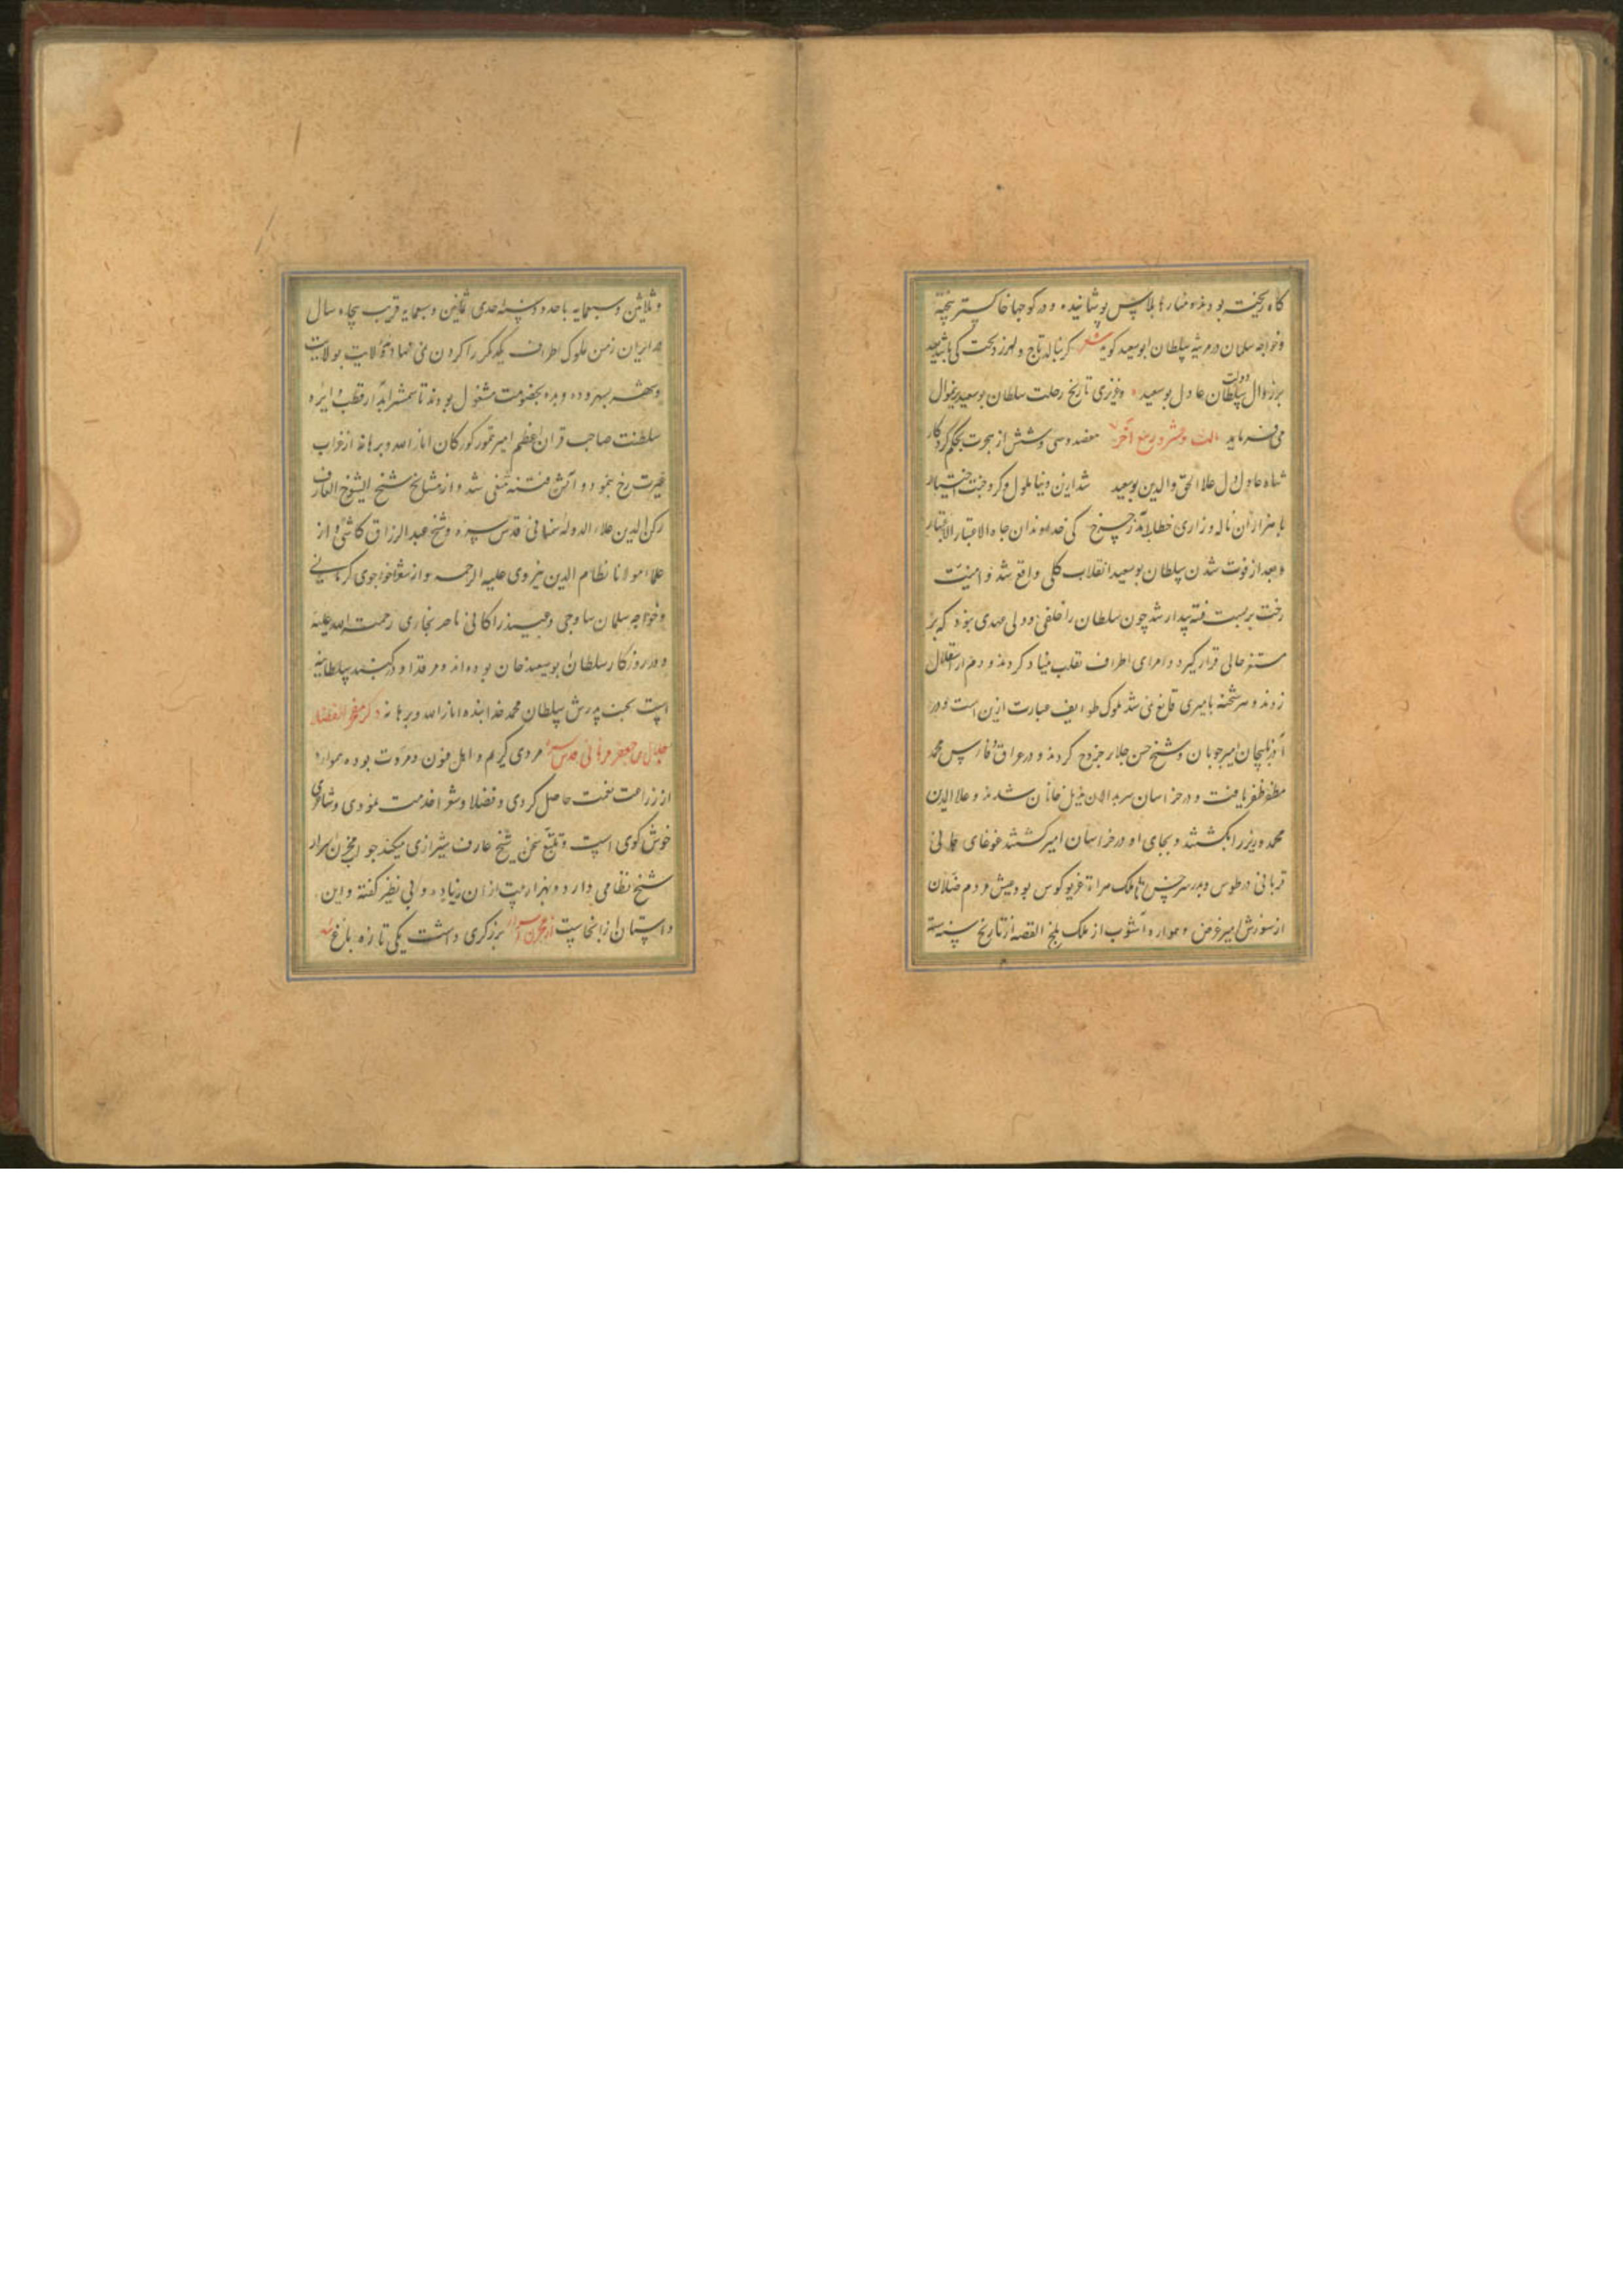 کاه ریخته بودند و منارها پلاس پوشانیده و در کوچها خاکستر بیخته
و خواجه سلمان در مرثیه سلطان ابوسعید کوید شعر کر بنالد تاج و لرزد تخت کی باشد بعید
بر زوال دولت سلطان عادل بوسعید و عزیزی تاریخ رحلت سلطان بوسعید برین منوال
می فرماید ربیع آخر هفصد و سی و شش از هجرت بحکم کردکار
شاه عادل دل علاالحق والدین بوسعید شد ازین دنیا ملول و کرد جنت اختیار
با هزاران ناله و زاری خطاب آمد ز چرخ کی خداوندان جاه الاعتبار الاعتبار
و بعد از فوت شدن سلطان بوسعید انقلاب کلی واقع شد و امنیت
رخت بربست فتنه بیدار شد چون سلطان را خلفی و ولی عهدی نبود که بر
مستقر خالی قرار کیرد و امرای اطراف تغلب بنیاد کردند و دم از استقلال
زدند و سر شحنه بامیری قانع نمی شد ملوک طوایف عبارت ازین است و در
آذربیجان امیر چوبان و شیخ حسن جلایر خروج کردند و در عراق و فارس محمد
مظفر ظفر یافت و در خراسان سربدالان خانان شدند و علاالدین
محمد وزیر را بکشتند و بجای او در خراسان امیر کشتند غوغای جانی
قربانی در طوس و در سرخس تا ملک هراة غریو کوس بود و عیش مردم ختلان
از شورش امیر غرض و همواره آشوب از ملک بلخ القصه از تاریخ سنه ستة
و ثلاثین و سبعمایه تا حدود سنه احدی ثمانین و سبعمایه قریب پنجاه سال
در ایران زمین ملوک اطراف یکدیکر را کردن نمی نهادند ولایت بولایت
و شهر بشهر و ده بده بخصومت مشغول بودند تا شمشیر آبدار قطب دایره
سلطنت صاحب قران اعظم امیر تیمور کورکان انار الله برهانه از قراب
غیرت رخ بنمود و آتش فتنه منتفی شد و از مشایخ شیخ الشیوخ العارف
رکن الدین علاء الدوله سمنانی قدس سره و شیخ عبدالرزاق کاشی و از
علما مولانا نظام الدین هروی علیه الرحمه و از شعرا خواجوی کرمانی
و خواجه سلمان ساوجی و عبید زاکانی ناصر بخاری رحمت الله علیه
و در روزکار سلطان بوسعید خان بوده اند و مرقد او در کنبد سلطانیه
است بجنب پدرش سلطان محمد خدابنده انار الله برهانه ذکر مفخر الفضلا
جلال بن جعفر فراهانی قدس سره مردی کریم و اهل فنون و مروت بوده همواره
از زراعت نعمت حاصل کردی و فضلا و شعرا خدمت نمودی و شاعری
خوش کوی است و تتبع سخن شیخ عارف شیرازی میکند جواب مخزن اسرار
شیخ نظامی دارد و بهزار بیت از آن زیاده و بی نظیر کفته و این
داستان از انجاست از مخزن اسرار برزکری داشت یکی تازه باغ